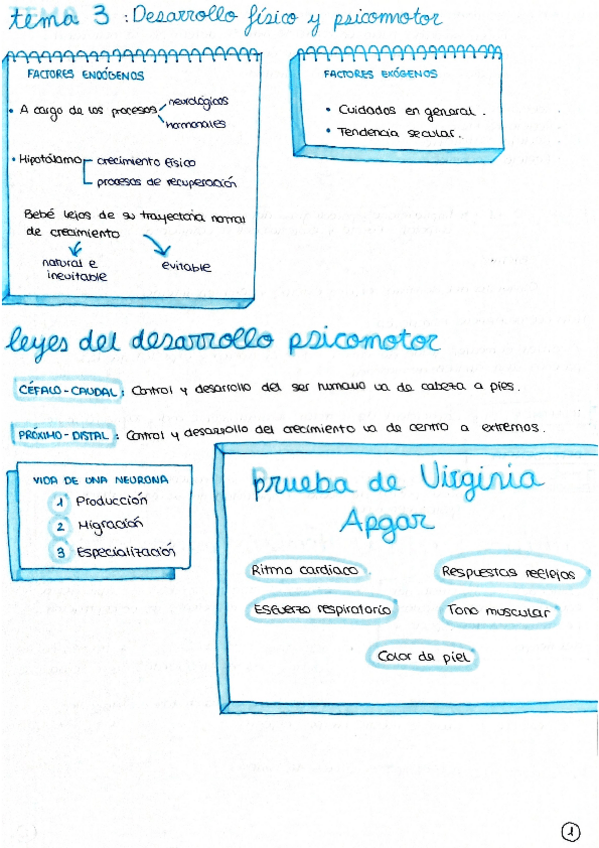 tema 3 : Desarrollo físico y psicomotor
FACTORES ENDÓGENOS
• A cargo de los procesos
neurológicos
hormonales
• Hipotálamo
crecimiento físico
procesos de recuperación
Bebé lejos de su trayectoria normal
de crecimiento
natural e
inevitable
evitable
FACTORES EXÓGENOS
• Cuidados en general.
• Tendencia secular.
leyes del desarrollo psicomotor
CÉFALO-CAUDAL: Control y desarrollo del ser humano va de cabeza a pies.
PRÓXIMO-DISTAL: Control y desarrollo del crecimiento va de centro a extremos.
VIDA DE UNA NEURONA
1 Producción
2 Migración
3 Especialización
prueba de Virginia
Apgar
Ritmo cardíaco
Respuestas reflejas
Esfuerzo respiratorio
Tono muscular
Color de piel
1